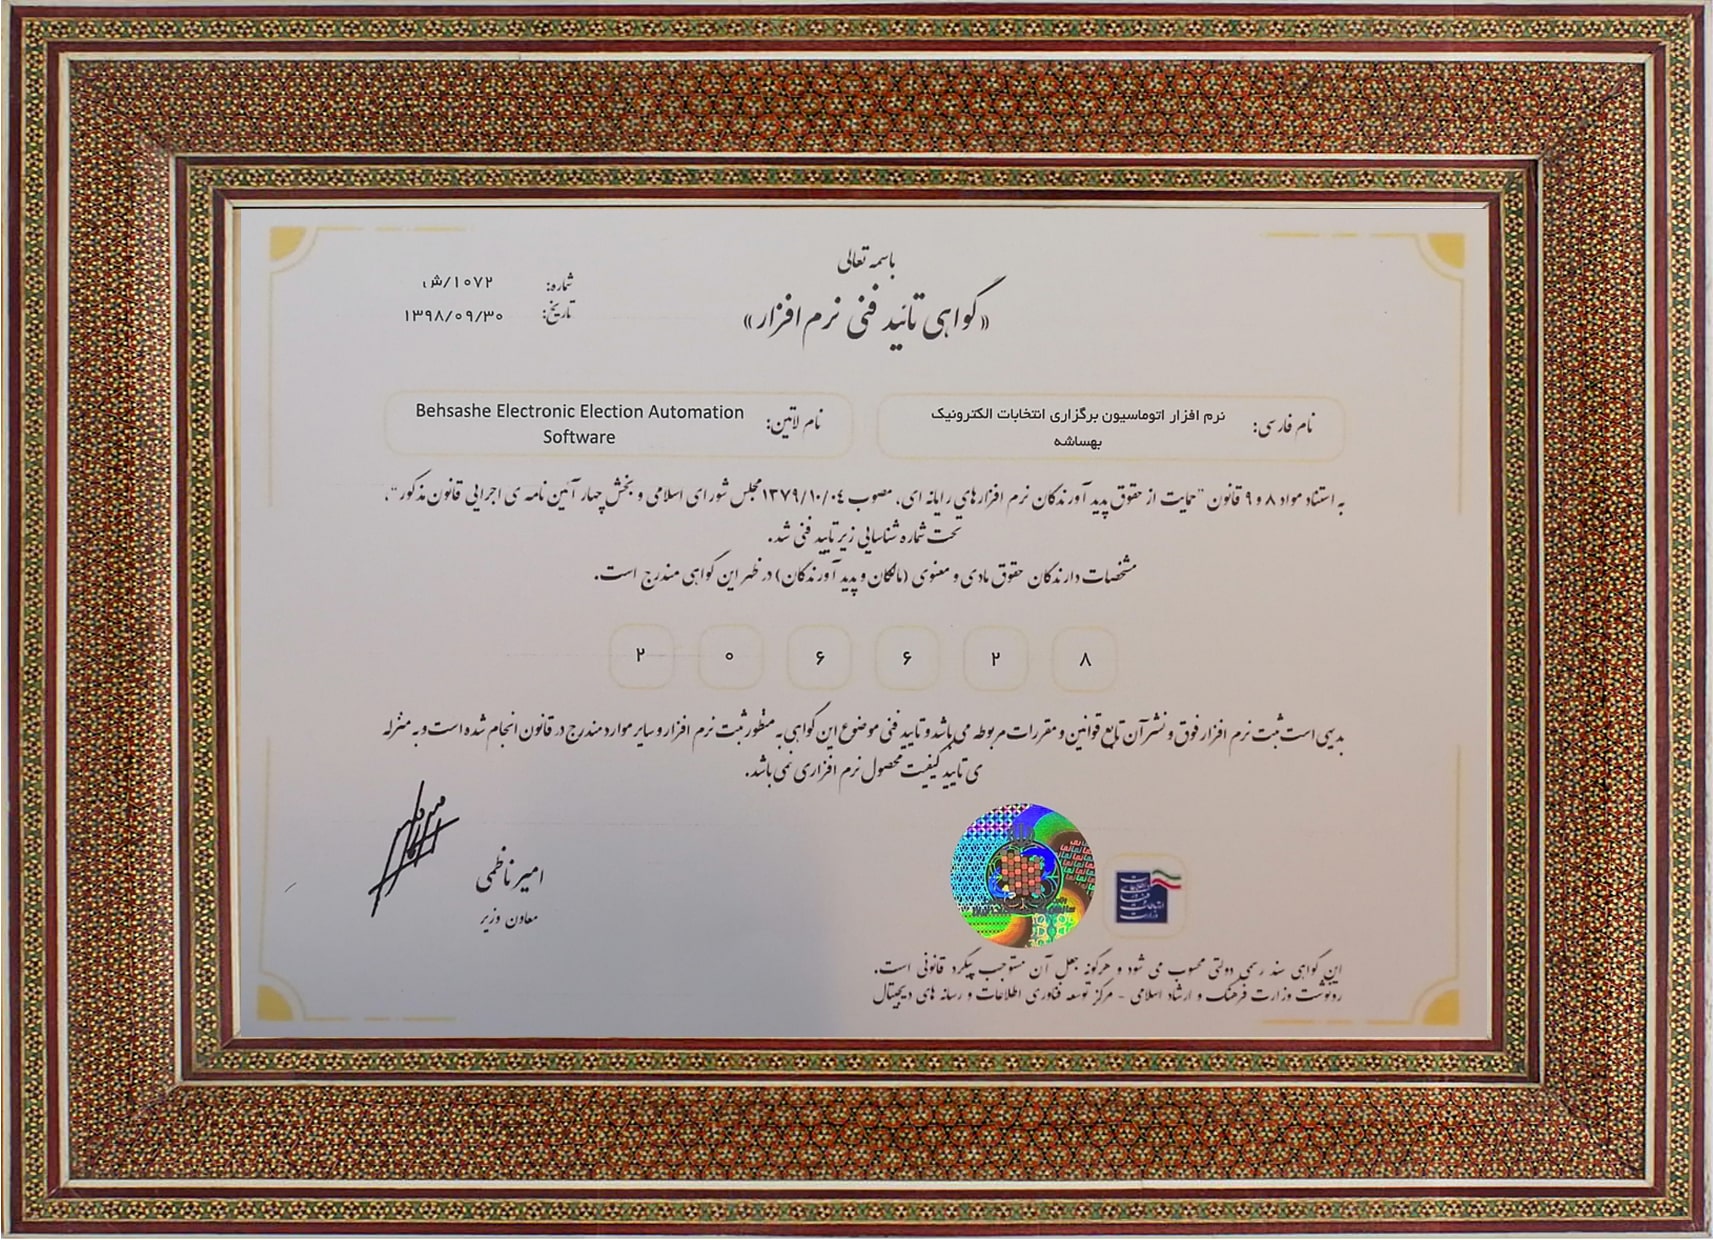 باسمه تعالی
«گواهی تائید فنی نرم افزار»
شماره: ۱۰۷۲/ش
تاریخ: ۱۳۹۸/۰۹/۳۰
نام فارسی: نرم افزار اتوماسیون برگزاری انتخابات الکترونیک
بهساشه
نام لاتین: Behsashe Electronic Election Automation
Software
به استناد مواد ۸ و ۹ قانون "حمایت از حقوق پدید آورندگان نرم افزارهای رایانه ای، مصوب ۱۳۷۹/۱۰/۰۴ مجلس شورای اسلامی و بخش چهار آئین نامه ی اجرایی قانون مذکور"،
تحت شماره شناسایی زیر تایید فنی شد.
مشخصات دارندگان حقوق مادی و معنوی (مالکان و پدید آورندگان) در ظهر این گواهی مندرج است.
۲ ۰ ۶ ۶ ۲ ۸
بدیهی است ثبت نرم افزار فوق و نشر آن تابع قوانین و مقررات مربوطه می باشد و تایید فنی موضوع این گواهی به منظور ثبت نرم افزار و سایر موارد مندرج در قانون انجام شده است و به منزله
ی تایید کیفیت محصول نرم افزاری نمی باشد.
امیر ناظمی
معاون وزیر
این گواهی سند رسمی دولتی محسوب می شود و هرگونه جعل آن مستوجب پیگرد قانونی است.
رونوشت وزارت فرهنگ و ارشاد اسلامی - مرکز توسعه فناوری اطلاعات و رسانه های دیجیتال